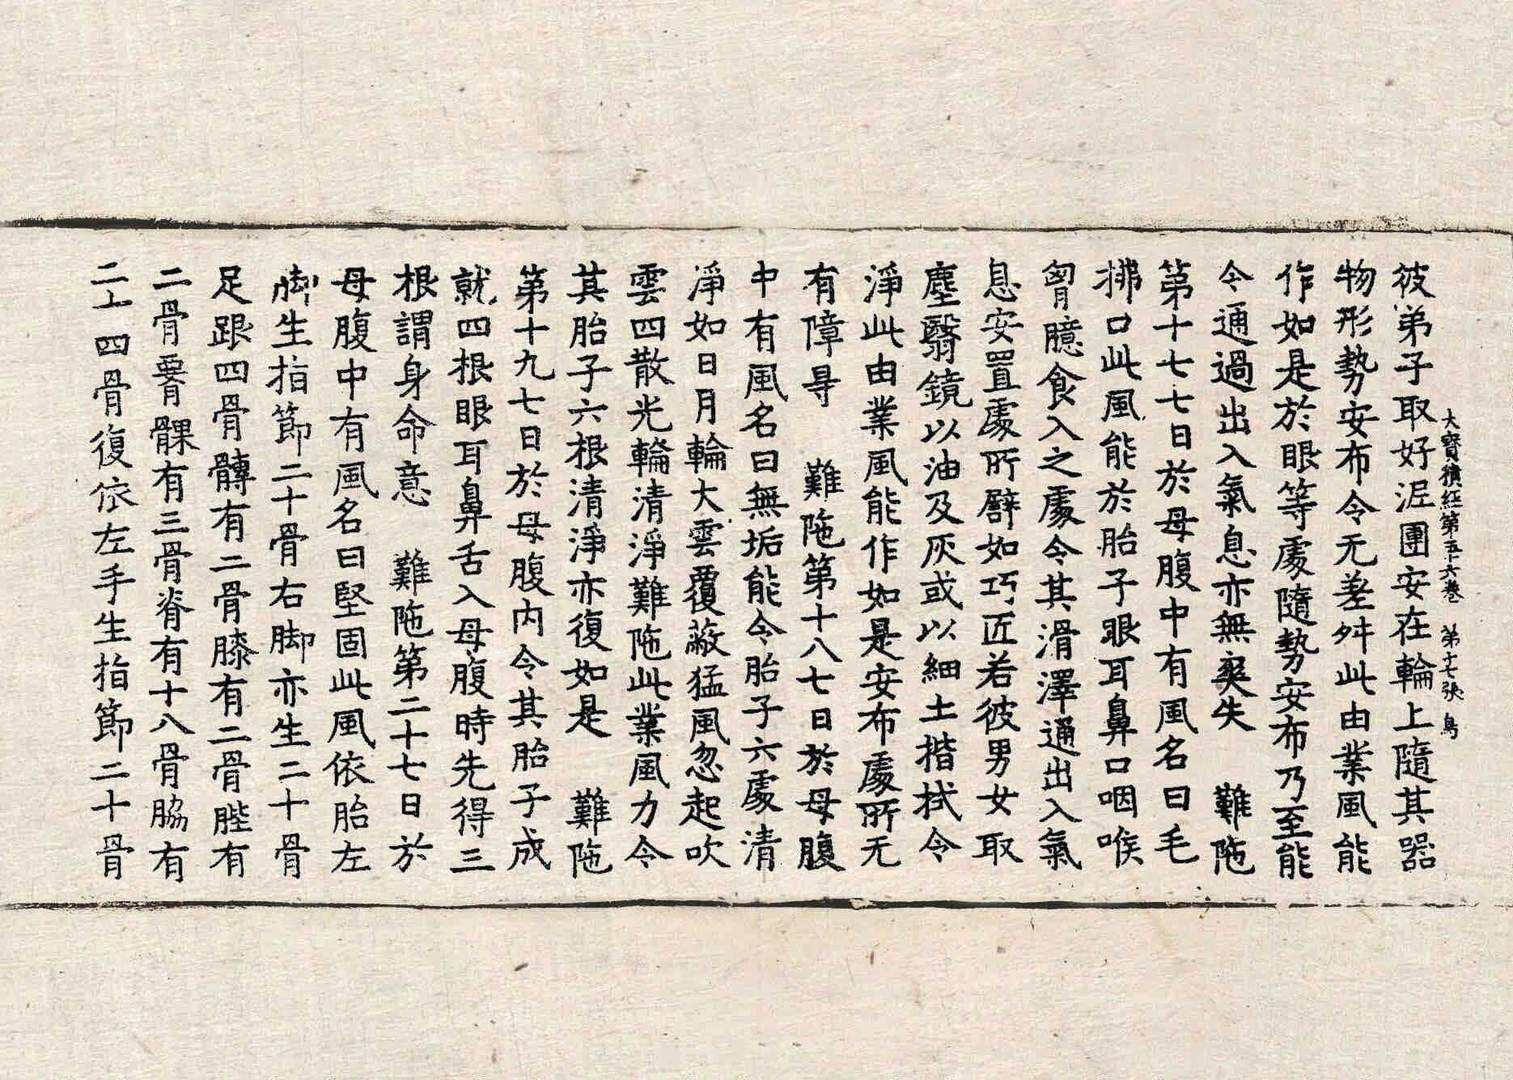 大寶積經第五十六卷　第十七張　鳥
彼弟子取好泥團安在輪上隨其器
物形勢安布令无差舛此由業風能
作如是於眼等處隨勢安布乃至能
令通過出入氣息亦無爽失　難陁
第十七七日於母腹中有風名曰毛
拂口此風能於胎子眼耳鼻口咽喉
胷臆食入之處令其滑澤通出入氣
息安置處所譬如巧匠若彼男女取
塵翳鏡以油及灰或以細土揩拭令
淨此由業風能作如是安布處所无
有障㝵　難陁第十八七日於母腹
中有風名曰無垢能令胎子六處清
淨如日月輪大雲覆蔽猛風忽起吹
雲四散光輪清淨難陁此業風力令
其胎子六根清淨亦復如是　難陁
第十九七日於母腹內令其胎子成
就四根眼耳鼻舌入母腹時先得三
根謂身命意　難陁第二十七日於
母腹中有風名曰堅固此風依胎左
脚生指節二十骨右脚亦生二十骨
足跟四骨髆有二骨膝有二骨髀有
二骨䯊髁有三骨脊有十八骨脇有
二十四骨復依左手生指節二十骨